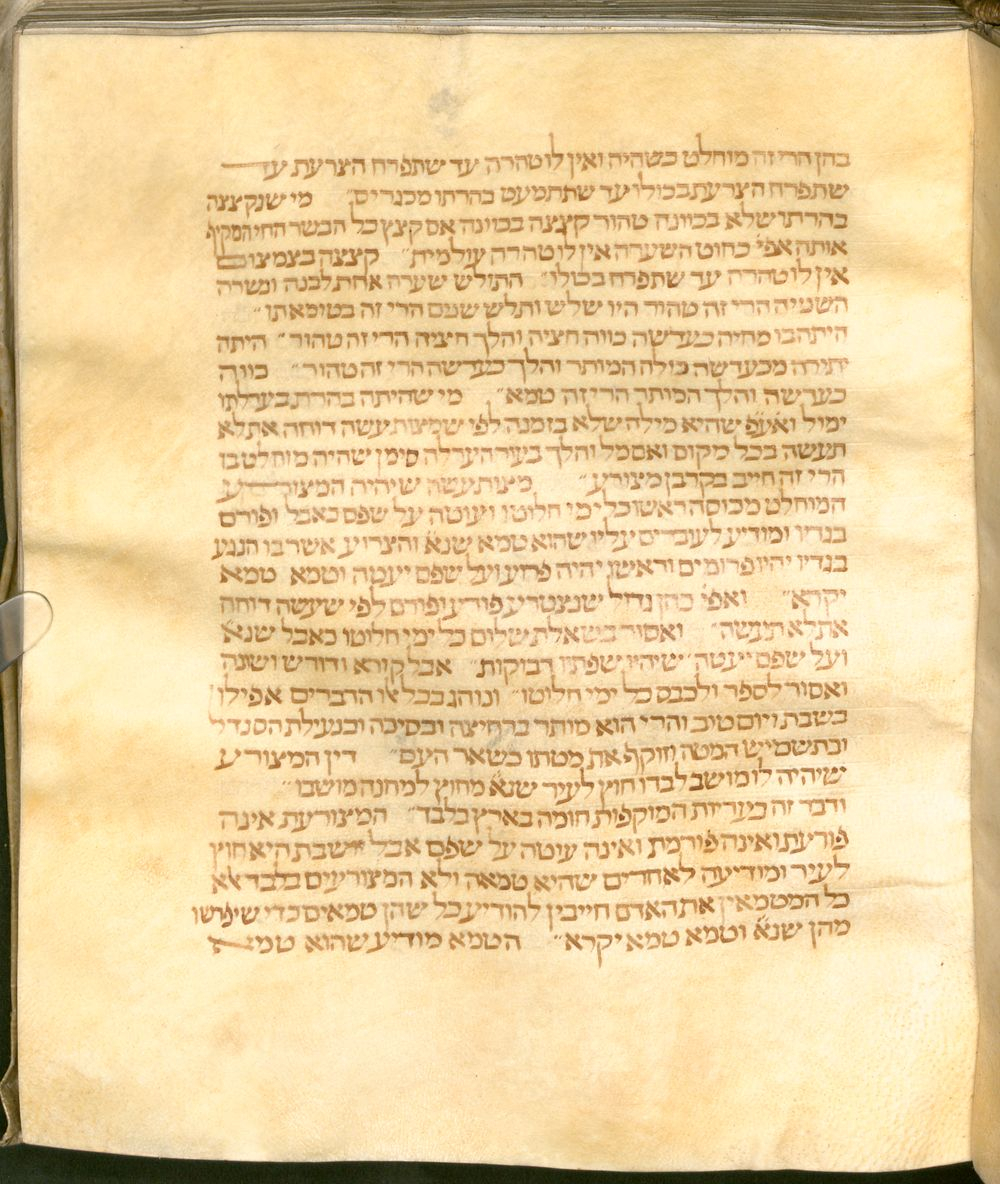 כהן הרי זה מוחלט כשהיה ואין לו טהרה עד שתפרח הצרעת עד
שתפרח הצרעת בכולו עד שתתמעט בהרתו מכגריס״ מי שנקצצה
בהרתו שלא בכוונה טהור קצצה בכוונה אם קצץ כל הבשר החי המקיף
אותה אפי׳ כחוט השערה אין לו טהרה עולמית״ קצצה בצמצום
אין לו טהרה עד שתפרח בכולו״ התולש שערה אחת לבנה ונשרה
השנייה הרי זה טהור היו שלש ותלש שתים הרי זה בטומאתו״
היתה בו מחיה כעדשה כווה חציה והלך חציה הרי זה טהור״ היתה
יתירה מכעדשה כווה המותר והלך כעדשה הרי זה טהור״ כווה
כעדשה והלך המותר הרי זה טמא״ מי שהיתה בהרת בערלתו
ימול ואע״פ שהיא מילה שלא בזמנה לפי שמצות עשה דוחה את לא
תעשה בכל מקום ואם מל והלך בעור הערלה סימן שהיה מוחלט בו
הרי זה חייב בקרבן מצורע״ מצות עשה שיהיה המצורע
המוחלט מכוסה ראש וכל ימי חלוטו ועוטה על שפם כאבל ופורם
בגדיו ומודיע לעוברים עליו שהוא טמא שנא׳ והצרוע אשר בו הנגע
בגדיו יהיו פרומים וראשו יהיה פרוע ועל שפם יעטה וטמא טמא
יקרא״ ואפי׳ כהן גדול שנצטרע פורע ופורם לפי שעשה דוחה
את לא תעשה״ ואסור בשאלת שלום כל ימי חלוטו כאבל שנא׳
ועל שפם יעטה״ שיהיו שפתיו דבוקות״ אבל קורא ודורש ושונה
ואסור לספר ולכבס כל ימי חלוטו״ ונוהג בכל אלו הדברים אפילו
בשבת ויום טוב והרי הוא מותר ברחיצה ובסיכה ובנעילת הסנדל
ובתשמיש המטה וזוקף את מטתו כשאר העם״ דין המצורע
שיהיה לו מושב לבדו חוץ לעיר שנא׳ מחוץ למחנה מושבו״
ודבר זה בעיריות המוקפות חומה בארץ בלבד״ המצורעת אינה
פורעת ואינה פורמת ואינה עוטה על שפם אבל יושבת היא חוץ
לעיר ומודיעה לאחרים שהיא טמאה ולא המצורעים בלבד אלא
כל המטמאין את האדם חייבין להודיע לכל שהן טמאים כדי שיפרשו
מהן שנא׳ וטמא טמא יקרא״ הטמא מודיע שהוא טמא